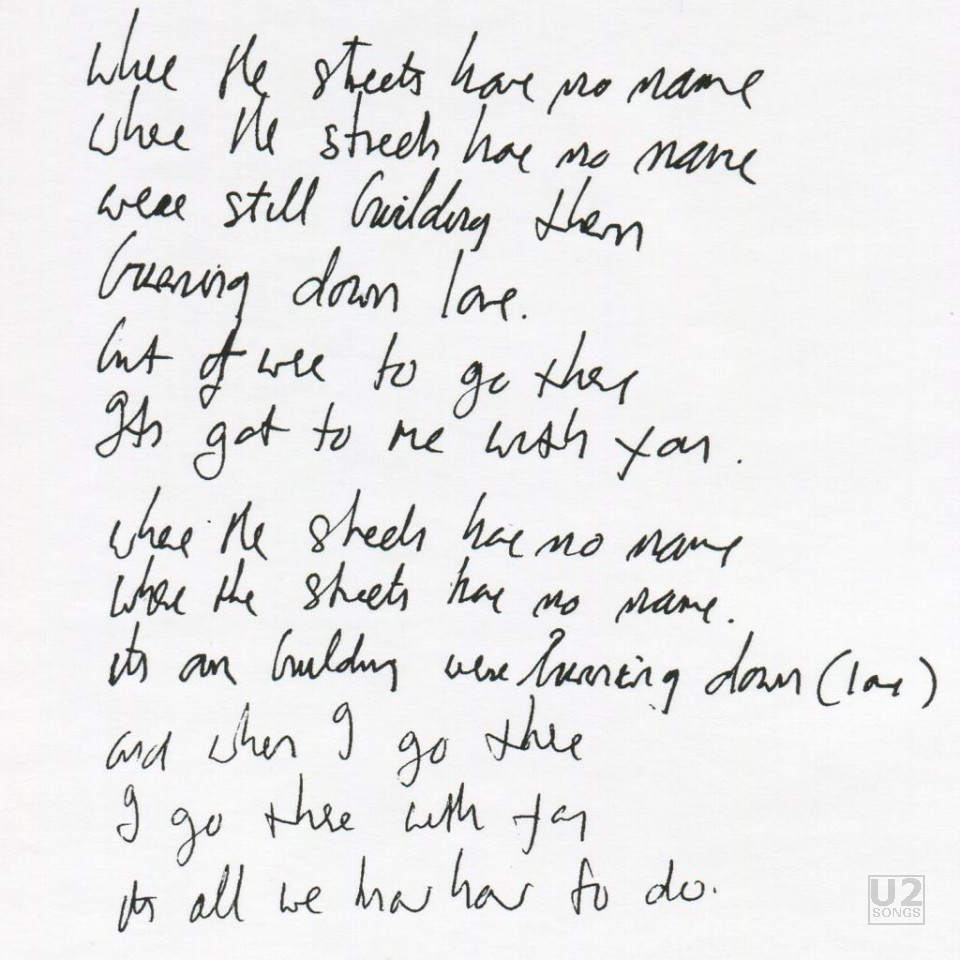 where the streets have no name
where the streets have no name
were still building them
burning down love.
but if were to go there
Its got to be with you.
where the streets have no name
where the streets have no name.
its our building were burning down (love)
and when I go there
I go there with you
its all we know how to do.
U2
SONGS